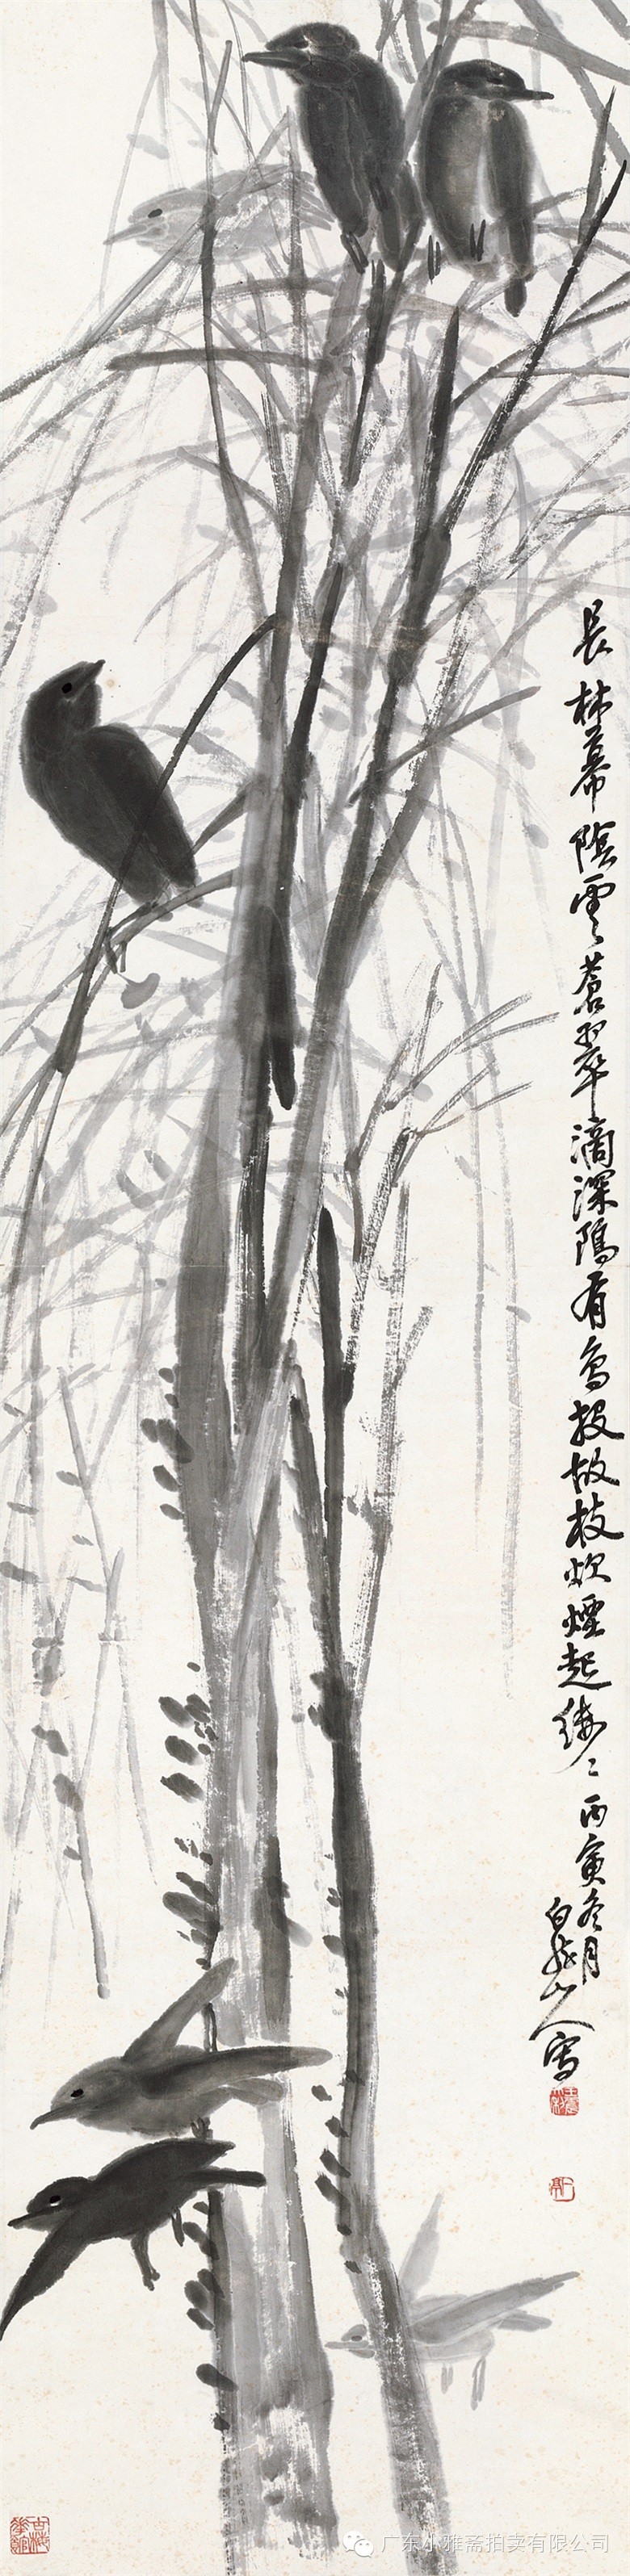 長林暮陰雲蒼翠滴深隖有鳥投故枝炊煙起縷〻丙寅冬月
白龍山人寫
王震
一亭
广东小雅斋拍卖有限公司